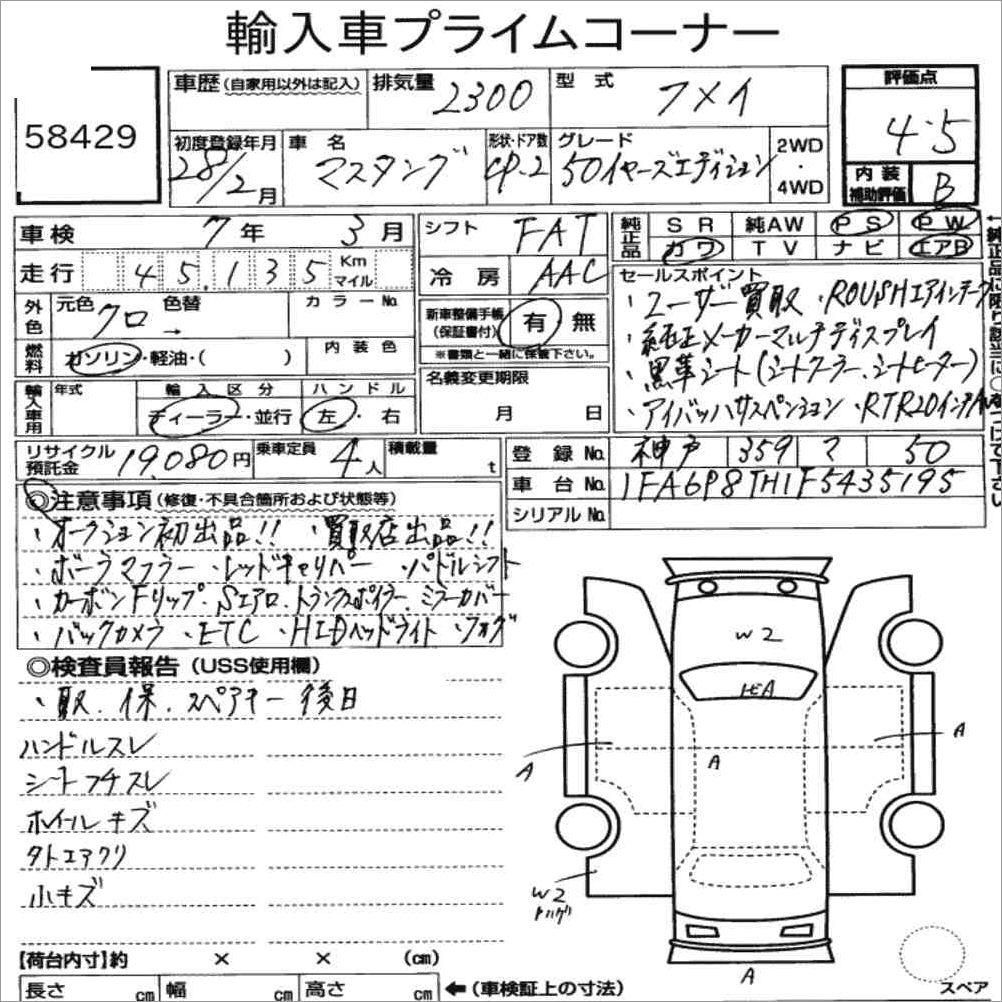 輸入車プライムコーナー
58429
車歴(自家用以外は記入) 排気量 2300 型式 フメイ
評価点 4.5
初度登録年月 28/2月 車名 マスタング 形状・ドア数 CP.2 グレード 50イヤーズエディション 2WD・4WD
内装補助評価 B
車検 7年 3月 シフト FAT
純正品 SR 純AW PS PW
カワ TV ナビ エアB
走行 45,135 Km マイル 冷房 AAC
セールスポイント
・ユーザー買取 ・ROUSHエアインテーク
・純正メーカーマルチディスプレイ
・黒革シート(シートクーラー、シートヒーター)
・アイバッハサスペンション ・RTR20インチAW
外色 元色 クロ 色替 → カラーNo.
新車整備手帳(保証書付) 有 無
※書類と一緒に保管下さい。
燃料 ガソリン・軽油・( ) 内装色
輸入車用 年式 輸入区分 ハンドル
ディーラー・並行 左・右
名義変更期限
月 日
リサイクル預託金 19,080円 乗車定員 4人 積載量 t
登録No. 神戸 359 マ 50
車台No. 1FA6P8TH1F5435195
シリアルNo.
◎注意事項(修復・不具合箇所および状態等)
・オークション初出品!! ・買取店出品!!
・ボーラマフラー・レッドキャリパー ・パドルシフト
・カーボンFリップ・Sエアロ・トランクスポイラー・ミラーカバー
・バックカメラ ・ETC ・HIDヘッドライト ・フォグ
◎検査員報告(USS使用欄)
・取.保.スペアキー後日
ハンドルスレ
シートフチスレ
ホイールキズ
タトエアクリ
小キズ
W2
トビA
A
A
A
W2
A
【荷台内寸】約 × × (cm)
長さ cm 幅 cm 高さ cm ←(車検証上の寸法)
スペア